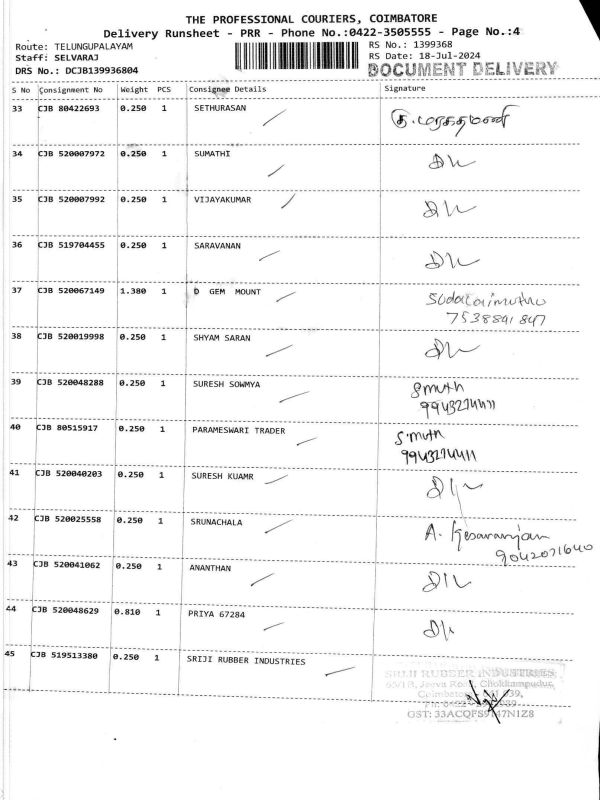 THE PROFESSIONAL COURIERS, COIMBATORE
Delivery Runsheet - PRR - Phone No.:0422-3505555 - Page No.:4
Route: TELUNGUPALAYAM
Staff: SELVARAJ
DRS No.: DCJB139936804
RS No.: 1399368
RS Date: 18-Jul-2024
DOCUMENT DELIVERY
S No Consignment No Weight PCS Consignee Details Signature
33 CJB 80422693 0.250 1 SETHURASAN
34 CJB 520007972 0.250 1 SUMATHI
35 CJB 520007992 0.250 1 VIJAYAKUMAR
36 CJB 519704455 0.250 1 SARAVANAN
37 CJB 520067149 1.380 1 D GEM MOUNT
7538891847
38 CJB 520019998 0.250 1 SHYAM SARAN
39 CJB 520048288 0.250 1 SURESH SOWMYA
40 CJB 80515917 0.250 1 PARAMESWARI TRADER
41 CJB 520040203 0.250 1 SURESH KUAMR
42 CJB 520025558 0.250 1 SRUNACHALA
9042071640
43 CJB 520041062 0.250 1 ANANTHAN
44 CJB 520048629 0.810 1 PRIYA 67284
45 CJB 519513380 0.250 1 SRIJI RUBBER INDUSTRIES
SRIJI RUBBER INDUSTRIES
Chokkampudur,